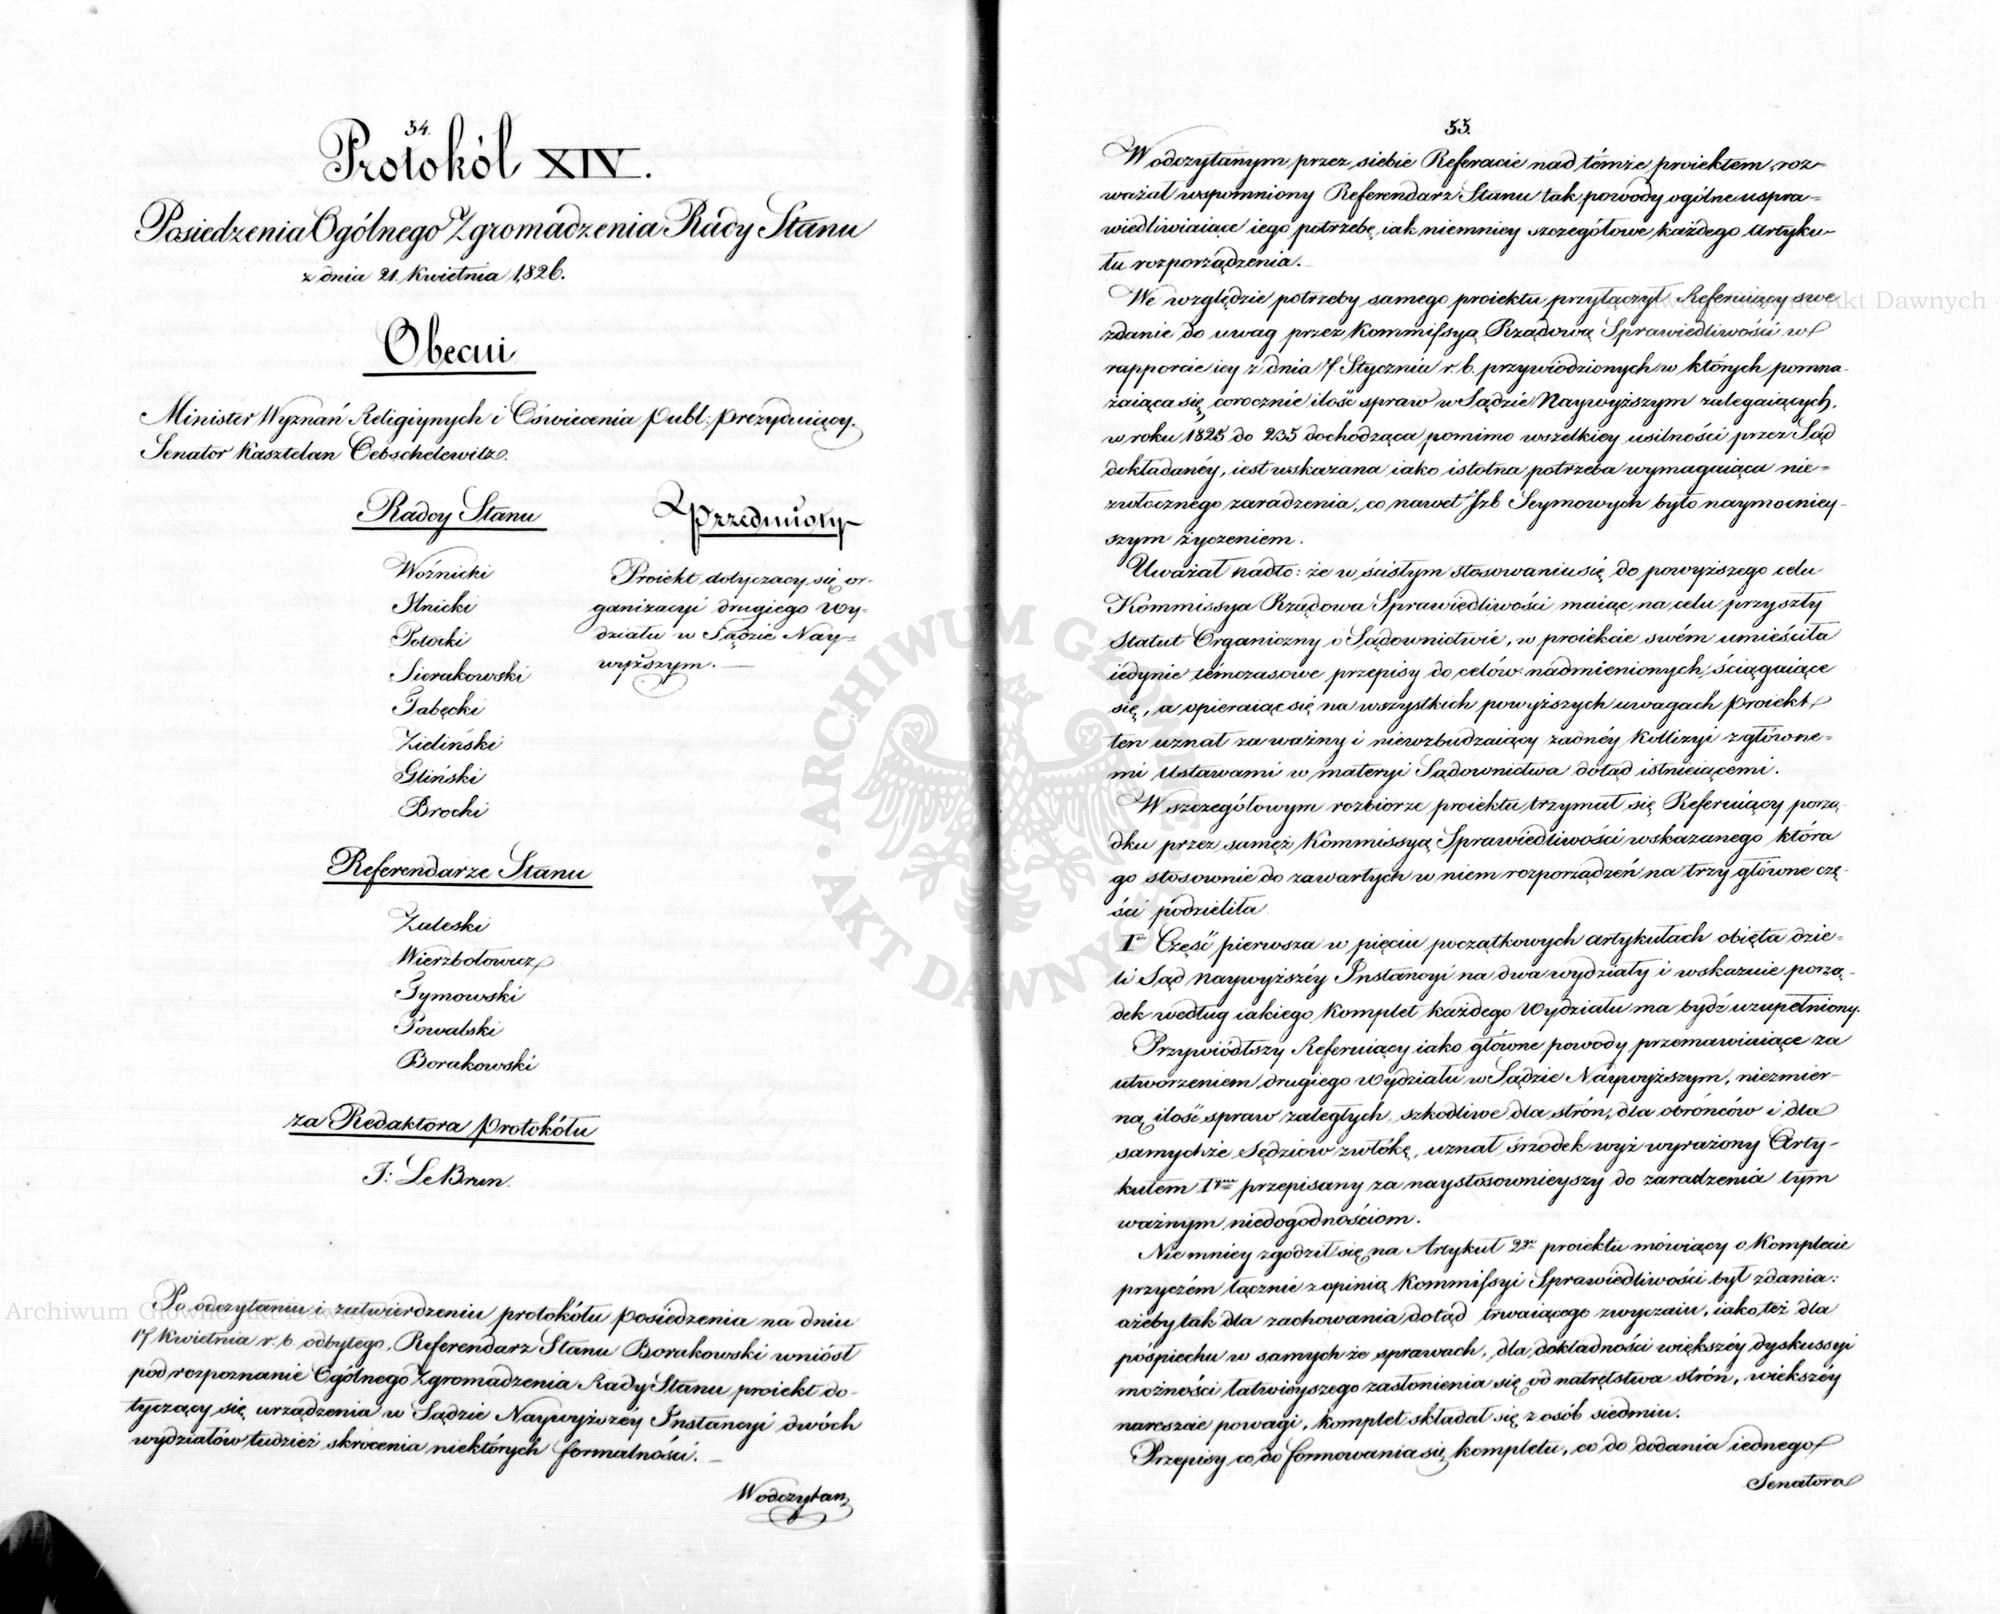 54.
Protokół XIV.
Posiedzenia Ogólnego Zgromadzenia Rady Stanu
z dnia 21. Kwietnia 1826.
Obecni
Minister Wyznań Religiynych i Oświecenia publ: prezyduiący.
Senator Kasztelan Oebschelewitz.
Radcy Stanu
Woźnicki
Ilnicki
Potocki
Sierakowski
Tabęcki
Zieliński
Gliński
Brocki
Przedmioty
Proiekt dotyczący się or-
ganizacyi drugiego Wy-
działu w Sądzie Nay-
wyższym. —
Referendarze Stanu
Zaleski
Wierzbołowicz
Tymowski
Powalski
Borakowski
za Redaktora protokółu
J: LeBrun.
Po odczytaniu i zatwierdzeniu protokółu posiedzenia na dniu
17 Kwietnia r. b. odbytego, Referendarz Stanu Borakowski wniósł
pod rozpoznanie Ogólnego Zgromadzenia Rady Stanu proiekt do-
tyczący się urządzenia w Sądzie Naywyższéy Instancyi dwóch
wydziałów tudzież skrócenia niektórych formalności. —
W odczytan
55.
W odczytanym przez siebie Referacie nad témże proiektem, roz-
ważał wspomniony Referendarz Stanu tak powody ogólne uspra-
wiedliwiaiące iego potrzebę, iak niemniey szczegółowe, każdego Artyku-
łu rozporządzenia. —
We względzie potrzeby samego proiektu przyłączył Referuiący swe
zdanie do uwag przez Kommissyą Rządową Sprawiedliwości w
rapporcie iey z dnia 7. Stycznia r. b. przywiedzionych w których pomna-
żaiąca się corocznie ilość spraw w Sądzie Naywyższym zalegaiących,
w roku 1825 do 235 dochodząca pomimo wszelkiey usilności przez Sąd
dokładanéy, iest wskazana iako istotna potrzeba wymagaiąca nie-
zwłocznego zaradzenia, co nawet Izb Seymowych było naymocniey-
szym życzeniem.
Uważał nadto: że w ścisłym stosowaniu się do powyższego celu
Kommissya Rządowa Sprawiedliwości maiąc na celu przyszły
Statut Organiczny o Sądownictwie, w proiekcie swém umieściła
iedynie témczasowe przepisy do celów nadmienionych ściągaiące
się, a opieraiąc się na wszystkich powyższych uwagach proiekt
ten uznał za ważny i niewzbudzaiący żadnéy Kollizyi z główne-
mi Ustawami w materyi Sądownictwa dotąd istnieiącemi.
W szczegółowym rozbiorze proiektu trzymał się Referuiący porzą-
dku przez samęż Kommissyą Sprawiedliwości wskazanego która
go stosownie do zawartych w niem rozporządzeń na trzy główne czę-
ści podzieliła
I Część pierwsza w pięciu początkowych artykułach obięta dzie-
li Sąd Naywyższéy Instancyi na dwa wydziały i wskazuie porzą-
dek według iakiego Komplet każdego Wydziału ma bydź uzupełniony.
Przywiódłszy Referuiący iako główne powody przemawiaiące za
utworzeniem drugiego wydziału w Sądzie Naywyższym, niezmier-
ną ilość spraw zaległych, szkodliwe dla strón, dla obrońców i dla
samychże Sędziów zwłókę, uznał śrzodek wyż wyrażony Arty-
kułem 1ym przepisany za naystosownieyszy do zaradzenia tym
ważnym niedogodnościom.
Nie mniey zgodził się na Artykuł 2gi proiektu mówiący o Komplecie
przyczém łącznie z opinią Kommissyi Sprawiedliwości był zdania:
ażeby tak dla zachowania dotąd trwaiącego zwyczaiu, iako też dla
pośpiechu w samych że sprawach, dla dokładności większéy dyskussyi
możności łatwieyszego zasłonienia się od natręctwa strón, większéy
nareszcie powagi, komplet składał się z osób siedmiu.
Przepisy co do formowania się kompletu, co do dodania iednego
Senatora